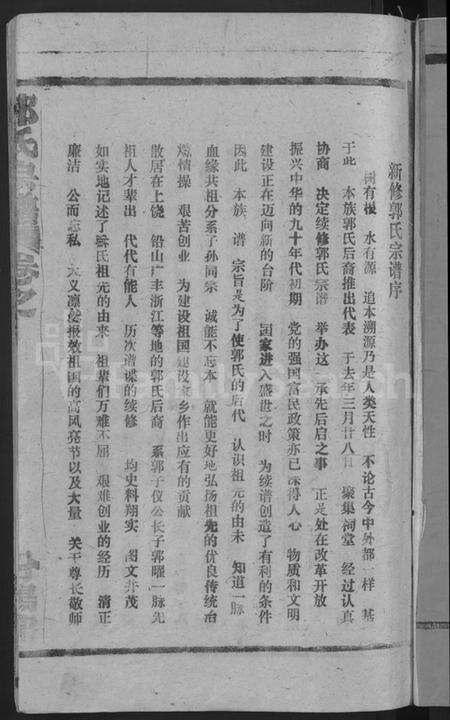 新修郭氏宗谱序
树有根 水有源 追本溯源乃是人类天性 不论古今中外都一样 基
于此 本族郭氏后裔推出代表 于去年三月廿八日 聚集祠堂 经过认真
协商 决定续修郭氏宗谱 举办这一承先后启之事 正是处在改革开放
振兴中华的九十年代初期 党的强国富民政策亦已深得人心 物质和文明
建设正在迈向新的台阶 国家进入盛世之时 为续谱创造了有利的条件
因此 本族 谱 宗旨是为了使郭氏的后代 认识祖先的由来 知道一脉
血缘共祖分系子孙同宗 诚能不忘本 就能更好地弘扬祖先的优良传统治
情操 艰苦创业 为建设祖国建设家乡作出应有的贡献
散居在上饶 铅山广丰浙江等地的郭氏后裔 系郭子仪公长子郭曜一脉先
祖人才辈出 代代有能人 历次谱谍的续修 均史料翔实 图文并茂
如实地记述了郭氏祖先的由来 祖辈们万难不屈 艰难创业的经历 清正
廉洁 公而忘私 大义凛凌报效祖国的高风亮节以及大量 关于尊长敬师
郭氏宗谱 卷之